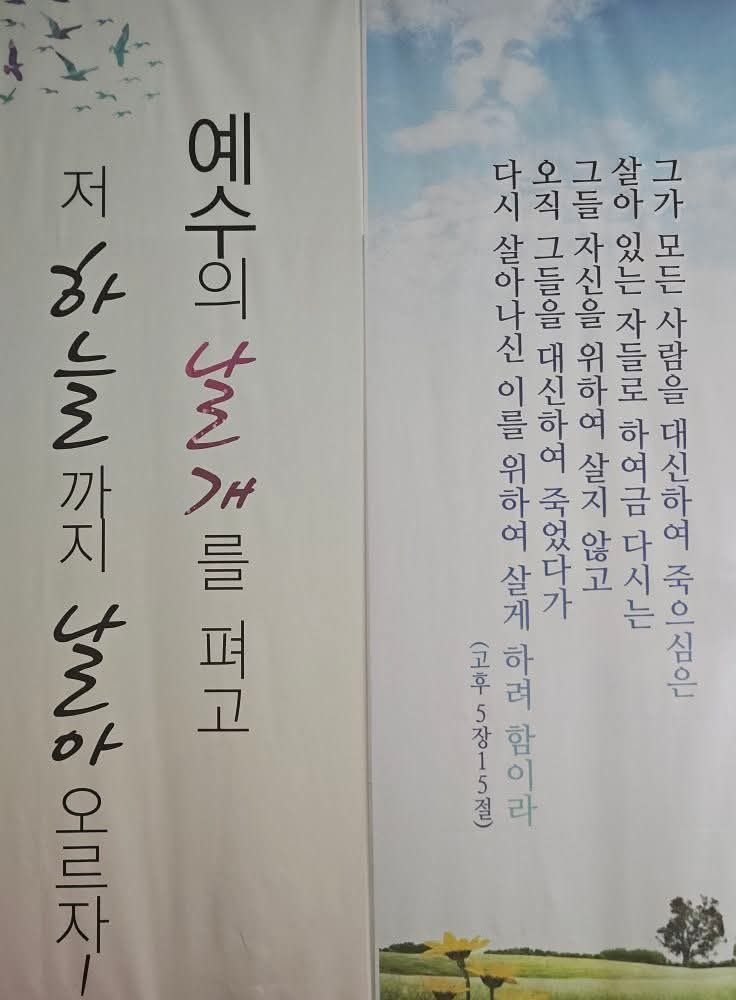 예수의 날개를 펴고
저 하늘까지 날아오르자!
그가 모든 사람을 대신하여 죽으심은
살아 있는 자들로 하여금 다시는
그들 자신을 위하여 살지 않고
오직 그들을 대신하여 죽었다가
다시 살아나신 이를 위하여 살게 하려 함이라
(고후 5장15절)